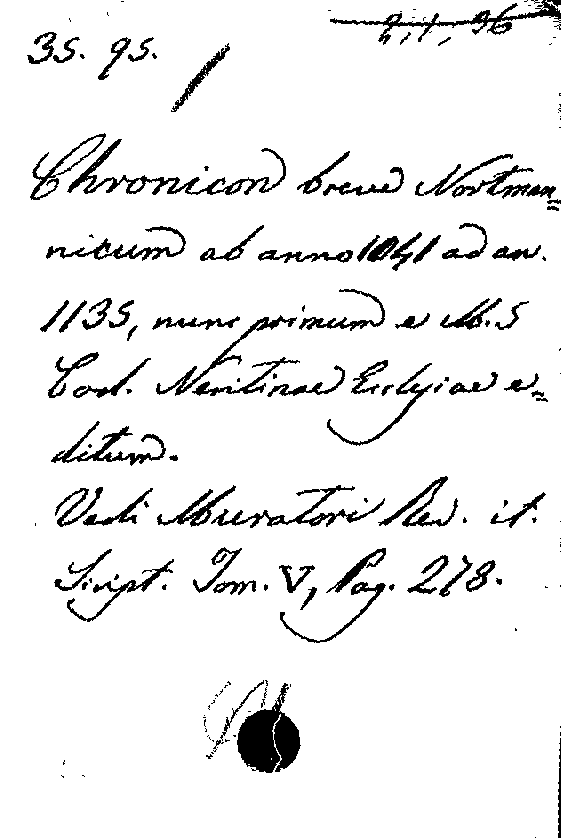 2, 1, 36
35. 95.
Chronicon breve Nortman=
nicum ab anno 1041 ad an.
1135, nunc primum e M.S
Cod. Neritinae Ecclesiae e=
ditum.
Vedi Muratori Rer. it.
Script. Tom. V, Pag. 278.